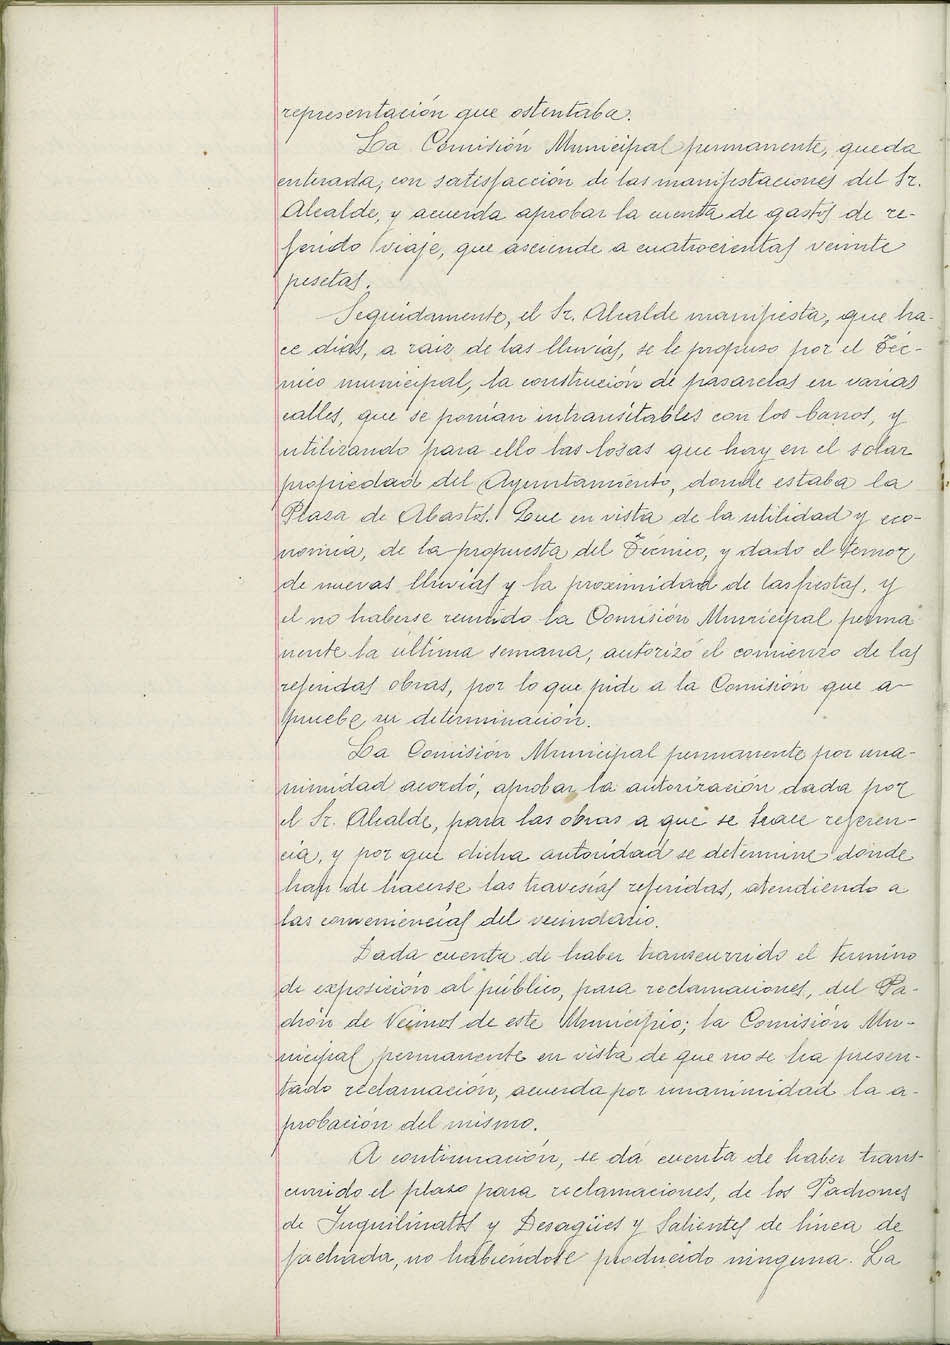 representación que ostentaba.
La Comisión Municipal permanente, queda
enterada, con satisfacción de las manifestaciones del Sr.
Alcalde, y acuerda aprobar la cuenta de gastos de re-
ferido viaje, que asciende a cuatrocientas veinte
pesetas.
Seguidamente, el Sr. Alcalde manifiesta, que ha-
ce días, a raiz de las lluvias, se le propuso por el Téc-
nico municipal, la construción de pasarelas en varias
calles, que se ponían intransitables con los barros, y
utilizando para ello las losas que hay en el solar
propiedad del Ayuntamiento, donde estaba la
Plaza de Abastos. Que en vista de la utilidad y eco-
nomía, de la propuesta del Técnico, y dado el temor
de nuevas lluvias y la proximidad de las fiestas, y
el no haberse reunido la Comisión Municipal perma
nente la última semana, autorizó el comienzo de las
referidas obras, por lo que pide a la Comisión que a-
pruebe su determinación.
La Comisión Municipal permanente por una-
nimidad acordó, aprobar la autorización dada por
el Sr. Alcalde, para las obras a que se hace referen-
cia, y por que dicha autoridad se determine donde
han de hacerse las travesías referidas, atendiendo a
las conveniencias del vecindario.
Dada cuenta de haber transcurrido el termino
de exposición al público, para reclamaciones, del Pa-
drón de Vecinos de este Municipio; la Comisión Mu-
nicipal permanente en vista de que no se ha presen-
tado reclamación, acuerda por unanimidad la a-
probación del mismo.
A continuación, se dá cuenta de haber trans-
currido el plazo para reclamaciones, de los Padrones
de Inquilinatos y Desagües y Salientes de línea de
fachada, no habiéndose producido ninguna. La